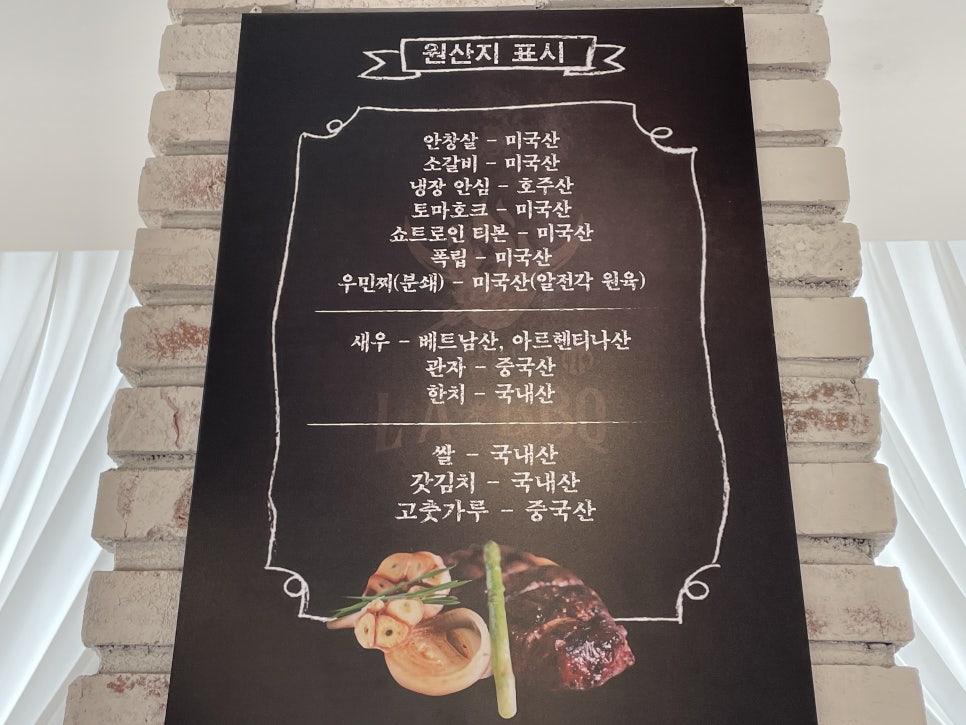 원산지 표시
안창살 - 미국산
소갈비 - 미국산
냉장 안심 - 호주산
토마호크 - 미국산
쇼트로인 티본 - 미국산
폭립 - 미국산
우민찌(분쇄) - 미국산(알전각 원육)
새우 - 베트남산, 아르헨티나산
관자 - 중국산
한치 - 국내산
쌀 - 국내산
갓김치 - 국내산
고춧가루 - 중국산